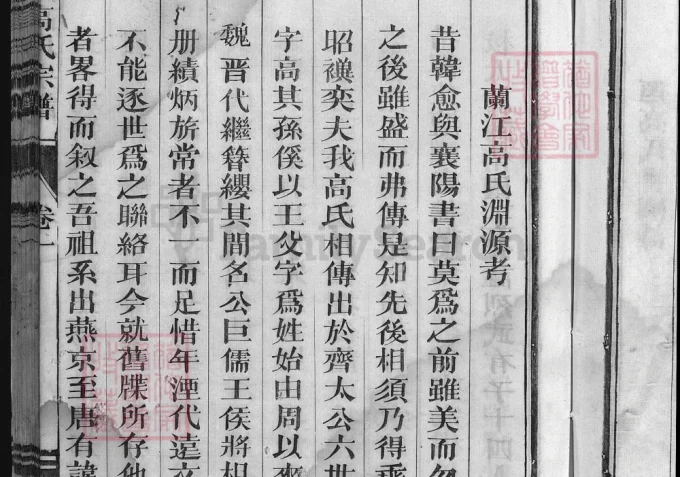 蘭江高氏淵源考
昔韓愈與襄陽書曰莫爲之前雖美而
之後雖盛而弗傳是知先後相須乃得
昭禩奕夫我高氏相傳出於齊太公六世
字高其孫傒以王父字爲姓始由周以來
魏晋代繼簪纓其間名公巨儒王侯將相
册績炳旂常者不一而足惜年湮代遠文
不能逐世爲之聯絡耳今就舊牒所存
者畧得而叙之吾祖系出燕京至唐有諱
高氏宗譜 卷一
FamilySearch